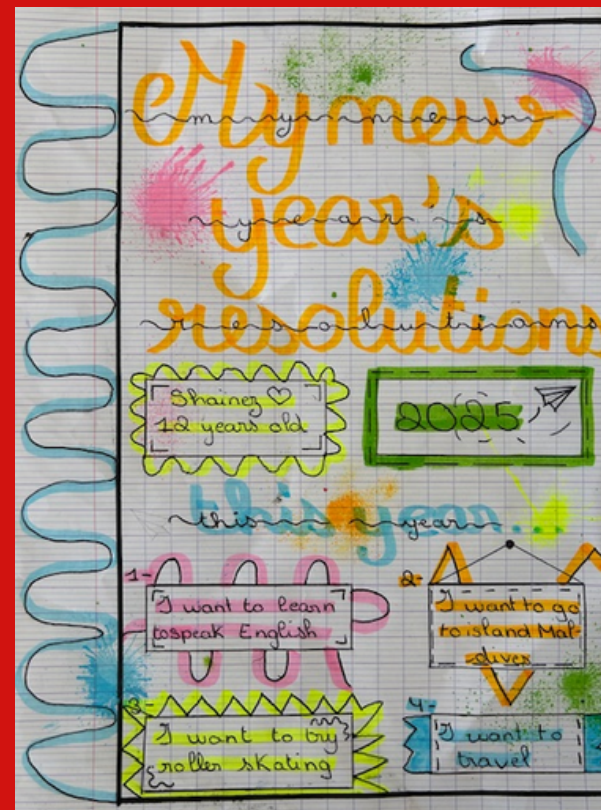 My new
my new
year's
year s
resolutions
resolutions
Shainez ♡
12 years old
2025
this year...
this year
1-
I want to learn
to speak English
2-
I want to go
to island Mal-
dives
3-
I want to try
roller skating
4-
I want to
travel